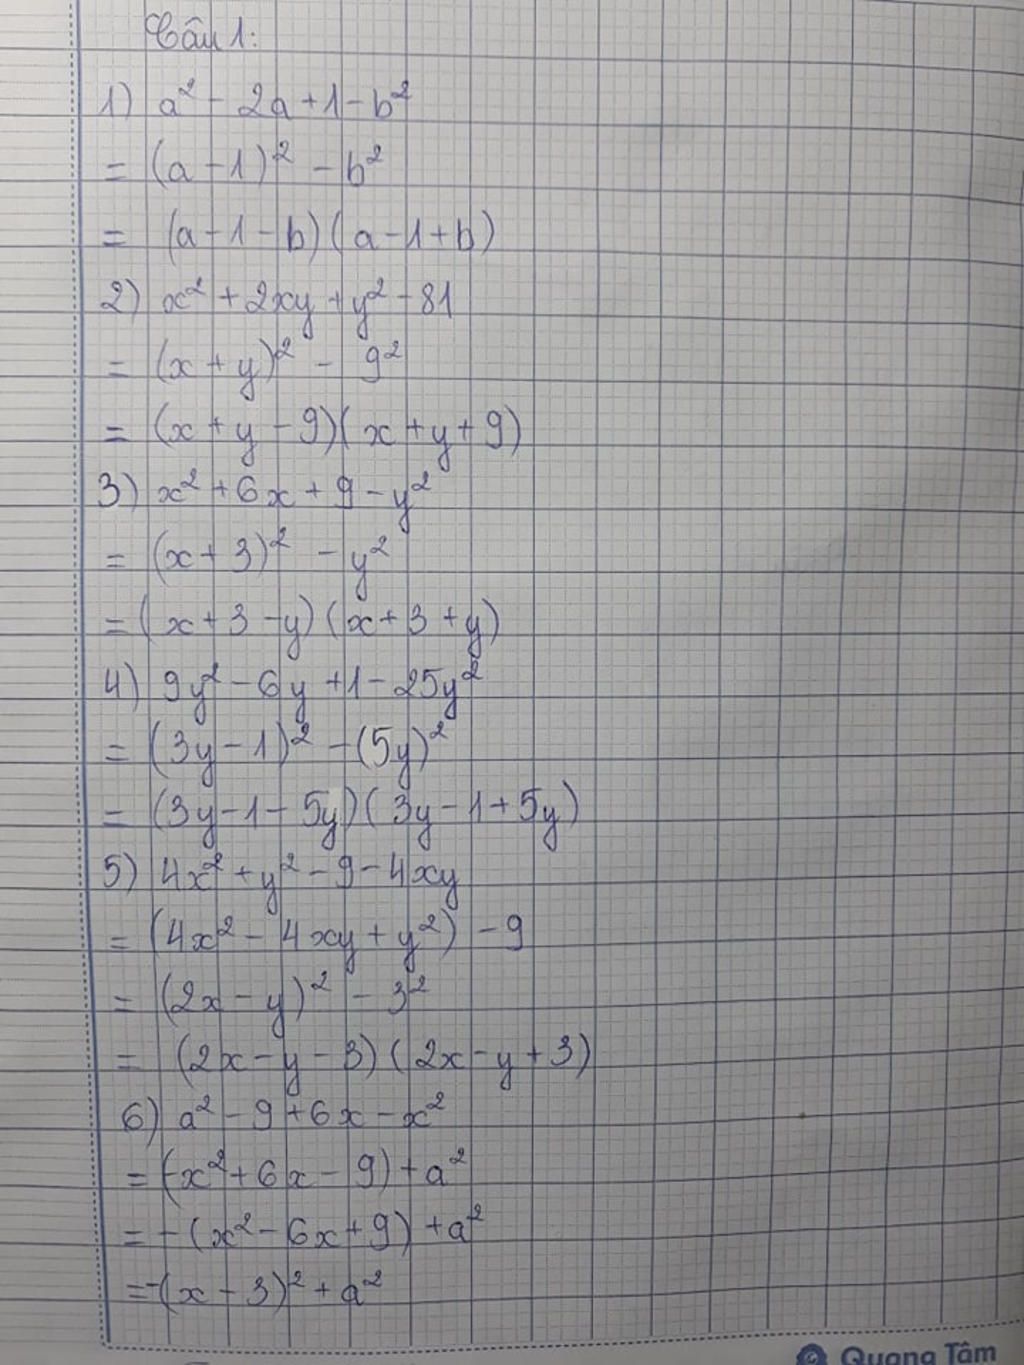 Câu 1:
1) a² - 2a + 1 - b²
= (a - 1)² - b²
= (a - 1 - b)(a - 1 + b)
2) x² + 2xy + y² - 81
= (x + y)² - 9²
= (x + y - 9)(x + y + 9)
3) x² + 6x + 9 - y²
= (x + 3)² - y²
= (x + 3 - y)(x + 3 + y)
4) 9y² - 6y + 1 - 25y²
= (3y - 1)² - (5y)²
= (3y - 1 - 5y)(3y - 1 + 5y)
5) 4x² + y² - 9 - 4xy
= (4x² - 4xy + y²) - 9
= (2x - y)² - 3²
= (2x - y - 3)(2x - y + 3)
6) a² - 9 + 6x - x²
= (-x² + 6x - 9) + a²
= - (x² - 6x + 9) + a²
= -(x - 3)² + a²
Quang Tâm